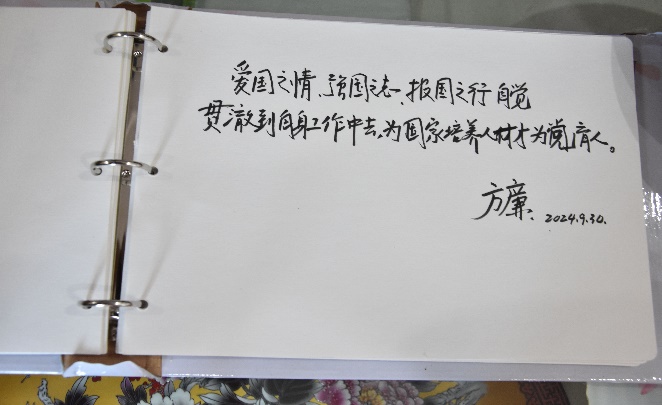 爱国之情、强国之志、报国之行自觉
贯澈到自身工作中去,为国家培养人材才为党育人。
方廉
2024.9.30.